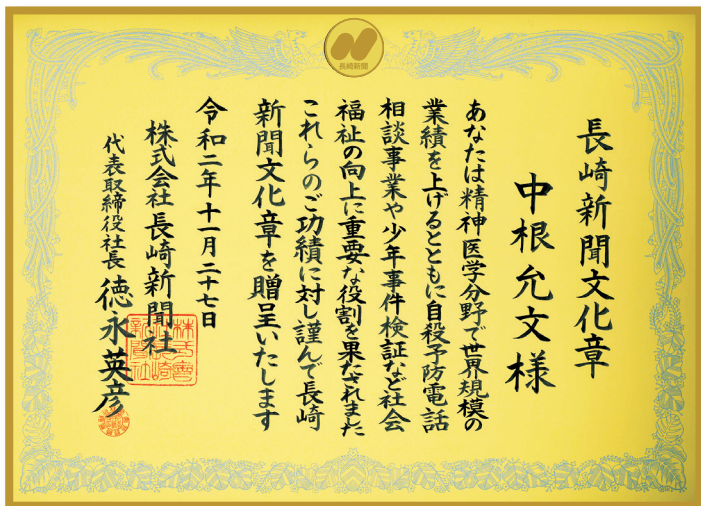 長崎新聞
長崎新聞文化章
中根允文様
あなたは精神医学分野で世界規模の
業績を上げるとともに自殺予防電話
相談事業や少年事件検証など社会
福祉の向上に重要な役割を果たされました
これらのご功績に対し謹んで長崎
新聞文化章を贈呈いたします
令和二年十一月二十七日
株式会社長崎新聞社
代表取締役社長 徳永英彦